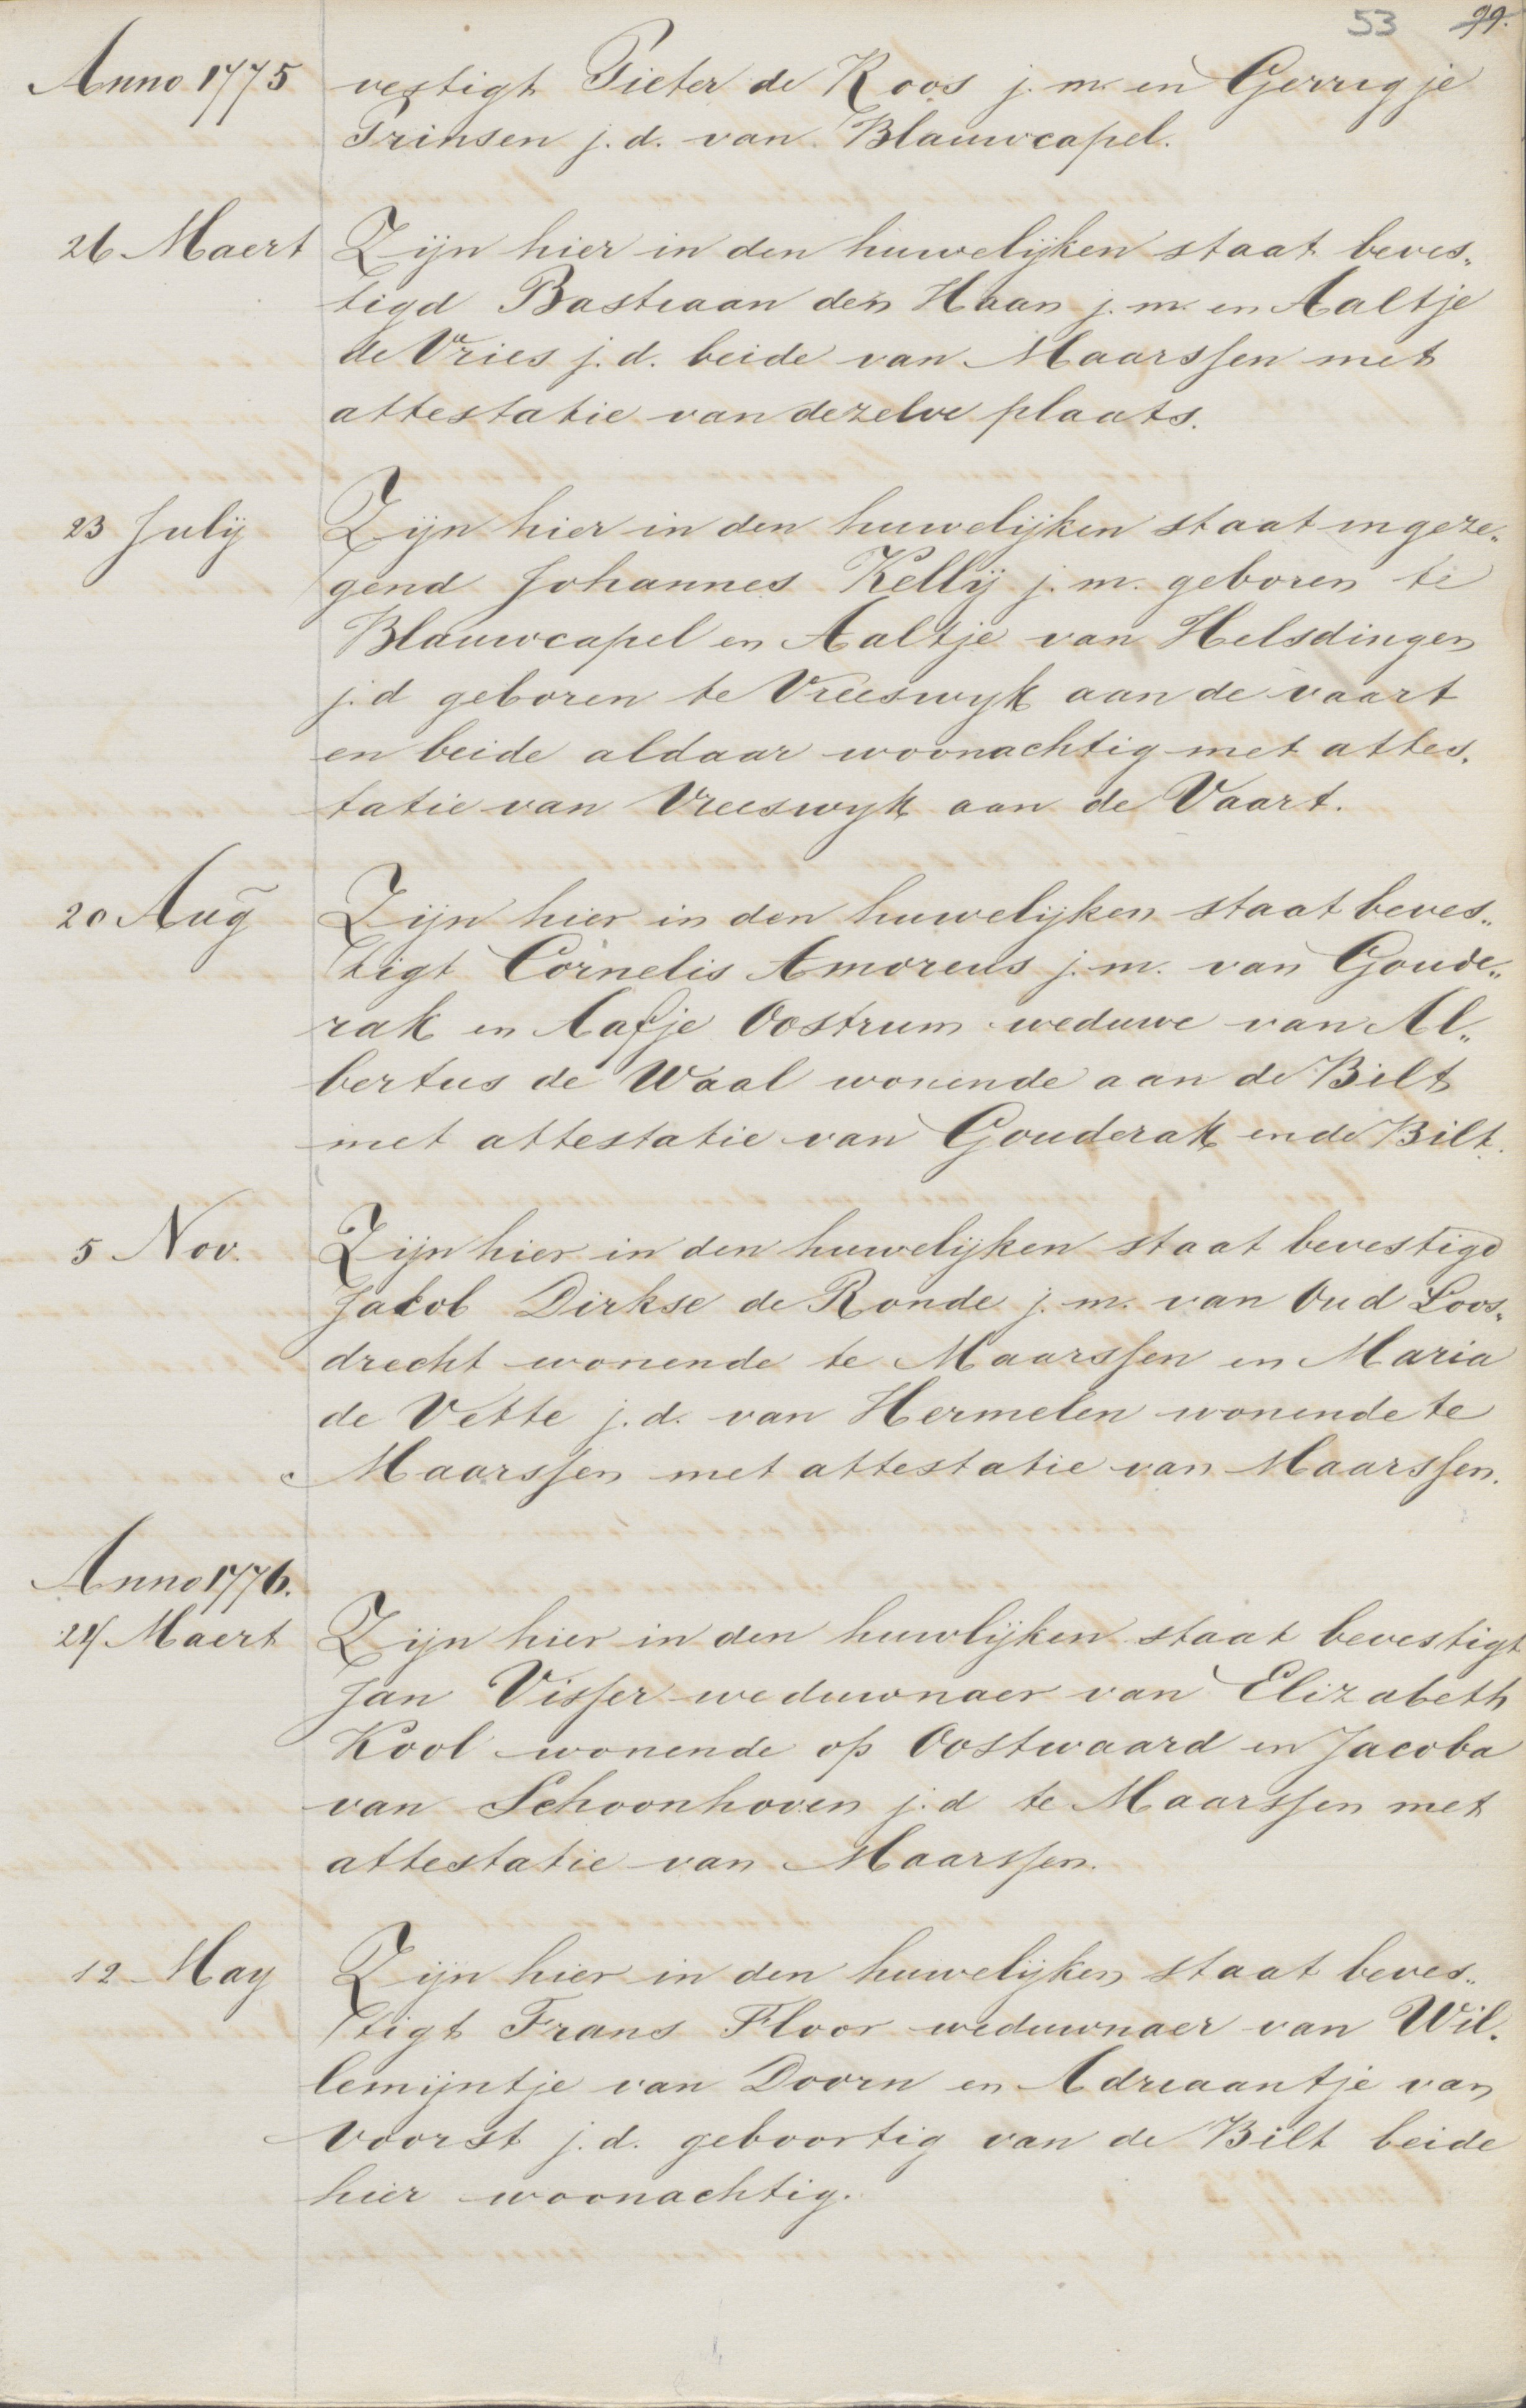 53 99.
Anno 1775 vestigt Pieter de Roos j. m. en Gerrigje
Prinsen j. d. van Blauwcapel.
26 Maert Zijn hier in den huwelijken staat beves„
tigd Bastiaan den Haan j. m. en Aaltje
de Vries j. d. beide van Maarssen met
attestatie van dezelve plaats.
23 Julij Zijn hier in den huwelijken staat ingeze„
gend Johannes Kellij j. m. geboren te
Blauwcapel en Aaltje van Helsdingen
j. d geboren te Vreeswyk aan de vaart
en beide aldaar woonachtig met attes„
tatie van Vreeswyk aan de Vaart.
20 Aug Zijn hier in den huwelijken staat beves„
tigt Cornelis Amoreus j. m. van Goude„
rak en Aafje Oostrum weduwe van Al„
bertus de Waal wonende aan de Bilt
met attestatie van Gouderak en de Bilt.
5 Nov. Zijn hier in den huwelijken staat bevestigd
Jakob Dirkse de Ronde j. m. van Oud Loos„
drecht wonende te Maarssen en Maria
de Vette j. d. van Hermelen wonende te
Maarssen met attestatie van Maarssen.
Anno 1776.
24 Maert Zijn hier in den huwlijken staat bevestigt
Jan Visser weduwnaer van Elizabeth
Kool wonende op Oostwaard en Jacoba
van Schoonhoven j. d te Maarssen met
attestatie van Maarssen.
12 May Zijn hier in den huwelijken staat beves„
tigt Frans Floor weduwnaer van Wil„
lemijntje van Doorn en Adriaantje van
Voorst j. d. geboortig van de Bilt beide
hier woonachtig.